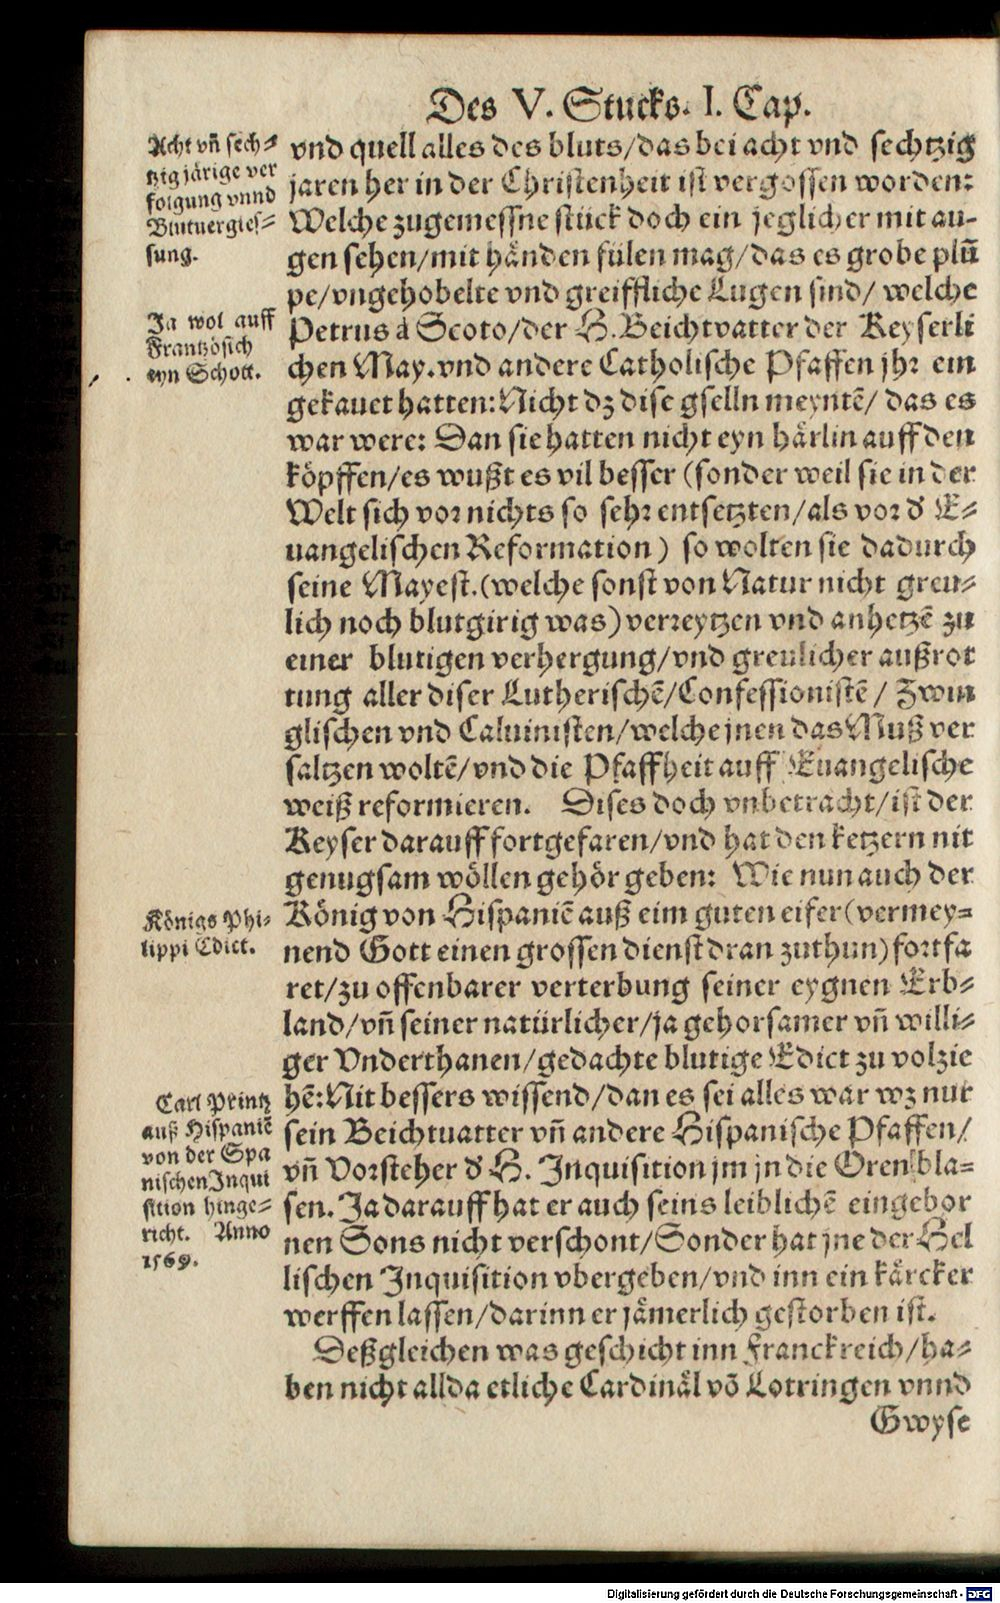 Des V. Stucks. I. Cap.
Acht vñ sech-
tzig järige ver
folgung vnnd
Blutuergies-
sung.
vnd quell alles des bluts/das bei acht vnd sechtzig
jaren her in der Christenheit ist vergossen worden:
Welche zugemessne stück doch ein jeglicher mit au-
gen sehen/mit händen fülen mag/das es grobe plũ
pe/vngehobelte vnd greiffliche Lugen sind/ welche
Ja wol auff
Frantzösich
eyn Schott.
Petrus à Scoto/der H. Beichtvatter der Keyserli
chen May. vnd andere Catholische Pfaffen jhr ein
gekauet hatten: Nicht dz dise gselln meyntẽ/ das es
war were: Dan sie hatten nicht eyn härlin auff den
köpffen/es wußt es vil besser (sonder weil sie in der
Welt sich vor nichts so sehr entsetzten/als vor d' E-
uangelischen Reformation) so wolten sie dadurch
seine Mayest. (welche sonst von Natur nicht greu-
lich noch blutgirig was) verreytzen vnd anhetzẽ zu
einer blutigen verhergung/vnd greulicher außrot
tung aller diser Lutherischẽ/Confessionistẽ/ Zwin
glischen vnd Caluinisten/welche jnen das Muß ver
saltzen woltẽ/vnd die Pfaffheit auff Euangelische
weiß reformieren. Dises doch vnbetracht/ist der
Keyser darauff fortgefaren/vnd hat den ketzern nit
genugsam wöllen gehör geben: Wie nun auch der
Königs Phi-
lippi Edict.
König von Hispaniẽ auß eim guten eifer (vermey-
nend Gott einen grossen dienst dran zuthun) fortfa
ret/zu offenbarer verterbung seiner eygnen Erb-
land/vñ seiner natürlicher/ja gehorsamer vñ willi-
ger Vnderthanen/gedachte blutige Edict zu volzie
Carl Printz
auß Hispaniẽ
von der Spa
nischen Inqui
sition hinge-
richt. Anno
1569.
hẽ: Nit bessers wissend/dan es sei alles war wz nur
sein Beichtuatter vñ andere Hispanische Pfaffen/
vñ Vorsteher d' H. Inquisition jm jn die Oren bla-
sen. Ja darauff hat er auch seins leiblichẽ eingebor
nen Sons nicht verschont/Sonder hat jne der Hel
lischen Inquisition vbergeben/vnd inn ein kärcker
werffen lassen/darinn er jämerlich gestorben ist.
Deßgleichen was geschicht inn Franckreich/ha-
ben nicht allda etliche Cardinäl võ Lotringen vnnd
Gwyse
Digitalisierung gefördert durch die Deutsche Forschungsgemeinschaft - DFG